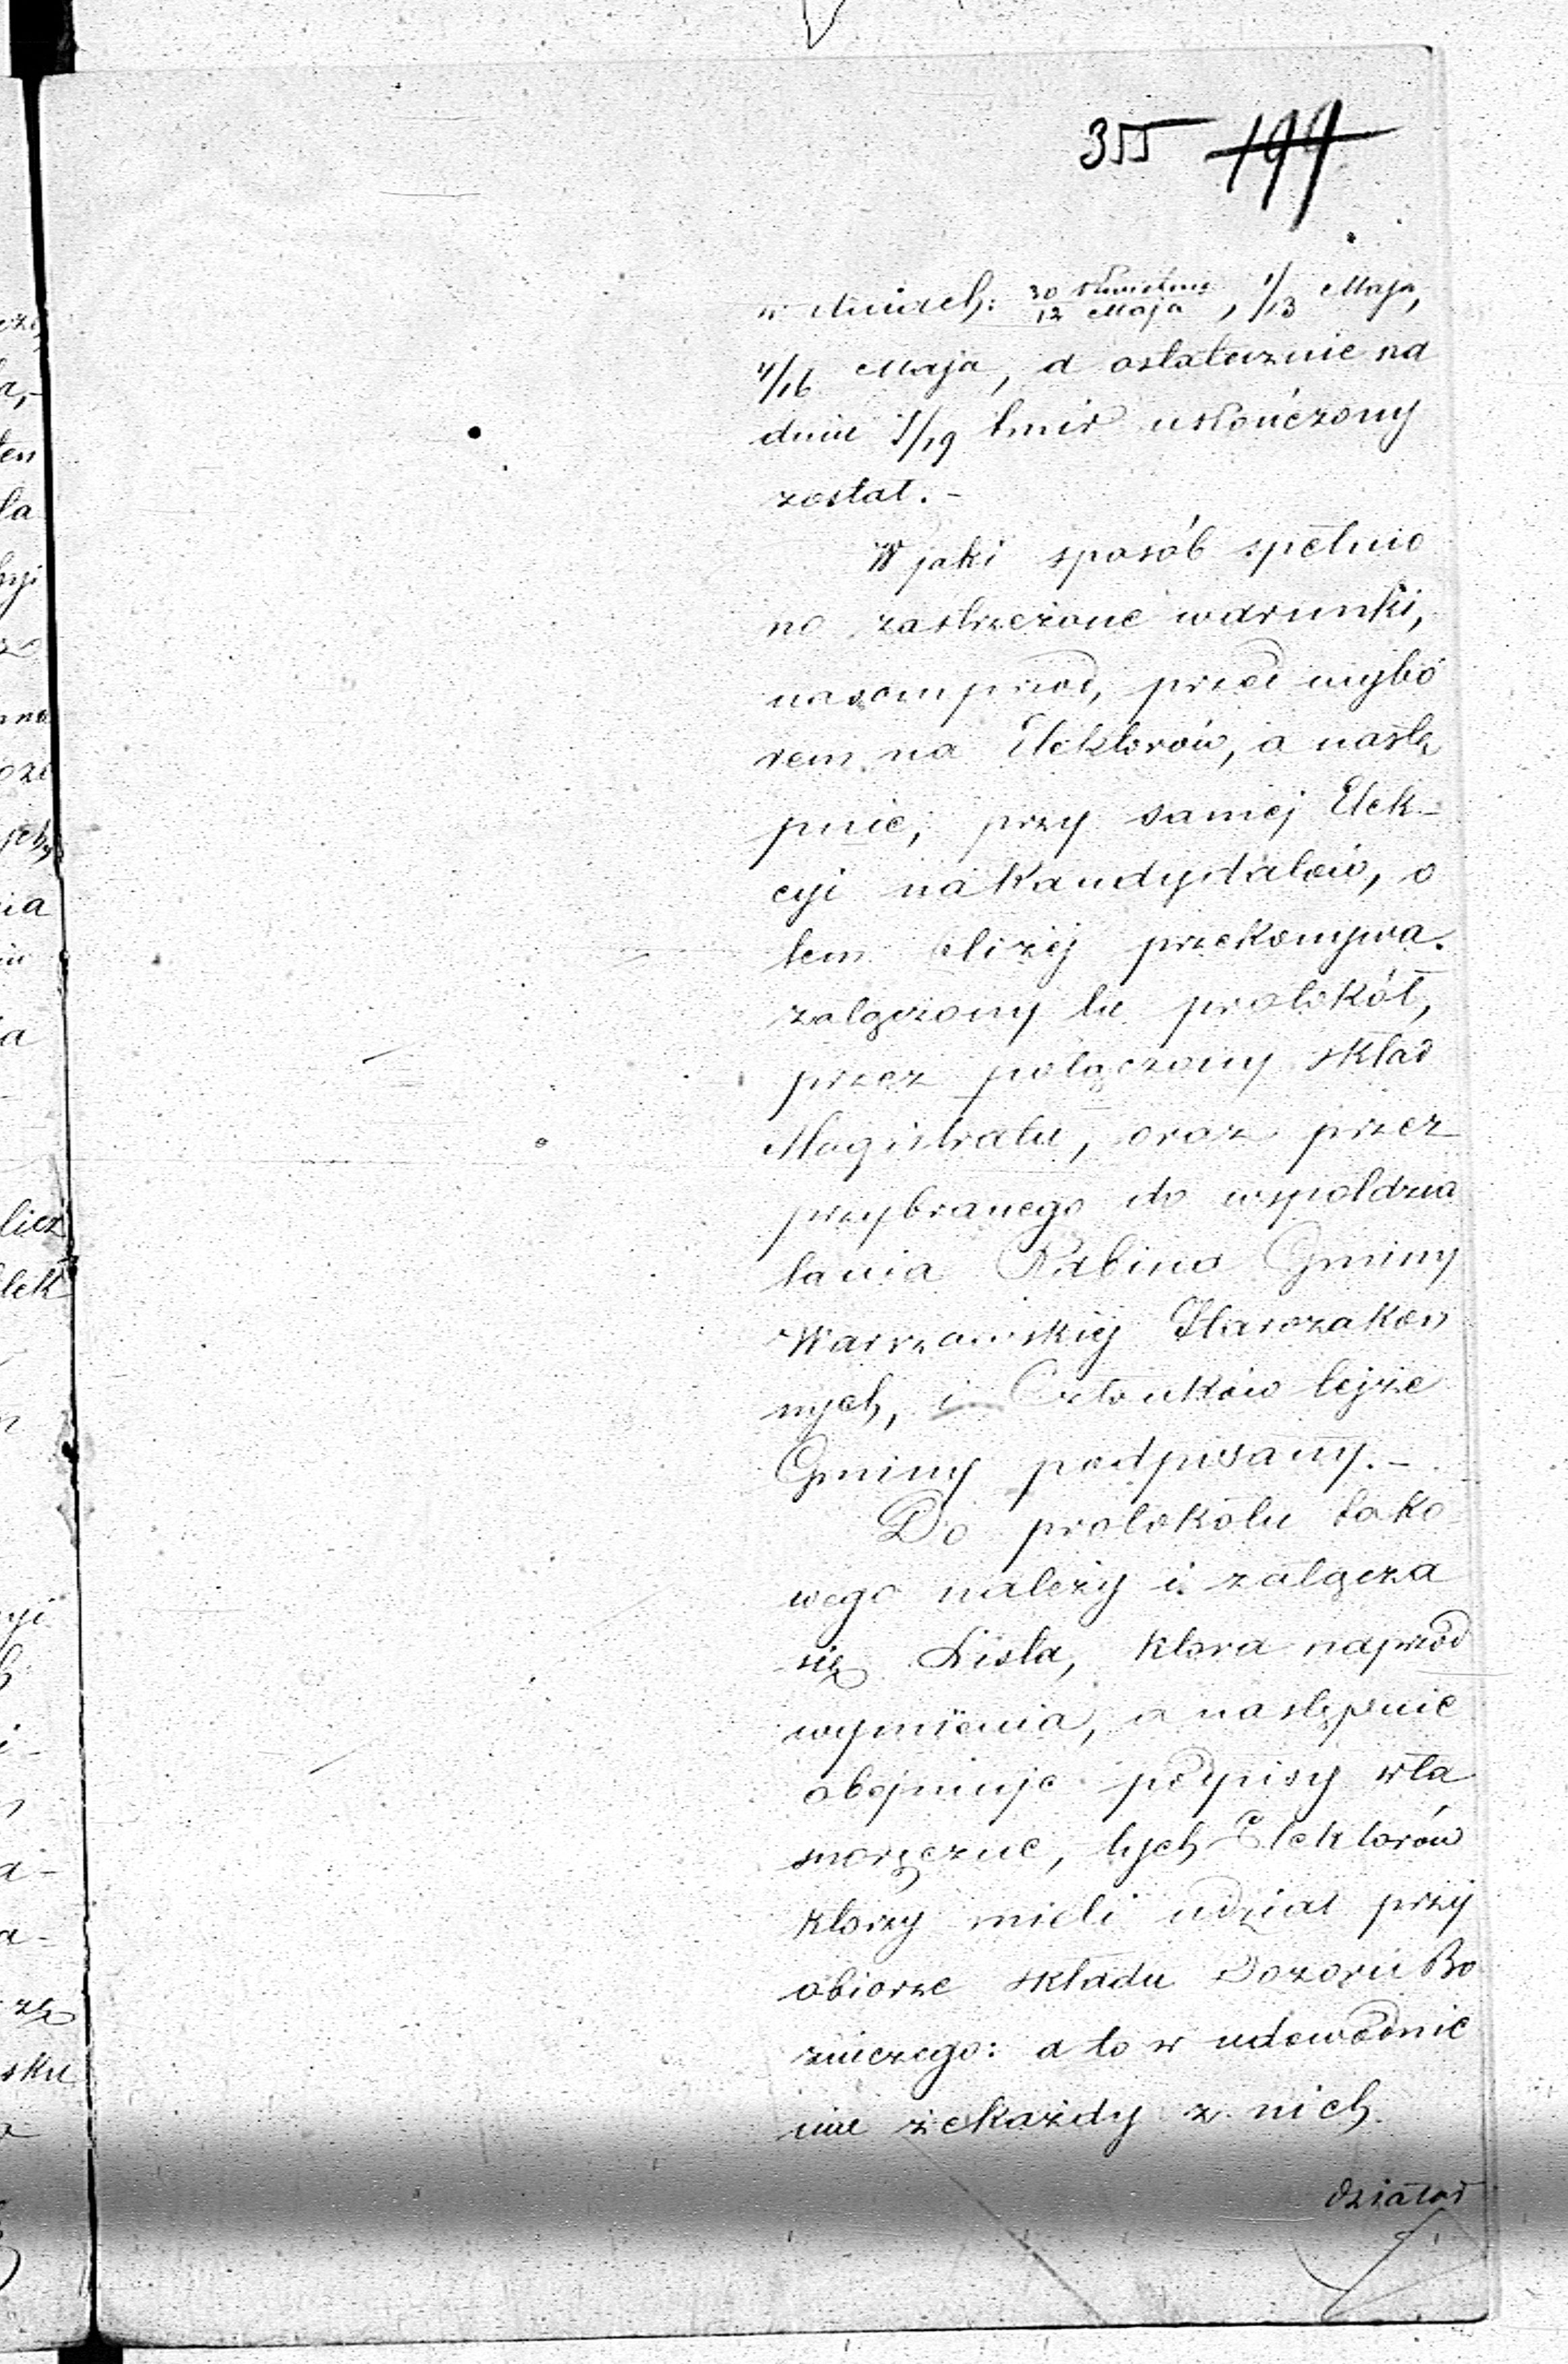 355 199
w dniach: 30 Kwietnia/12 Maja, 1/13 Maja,
4/16 Maja, a ostatecznie na
dniu 7/19 tmir uskończony
został. -
W jaki sposób spełnio
no zastrzeżone warunki,
nasamprzod, przed wybo
rem na Elektorów, a nastę
pnie, przy samej Elek-
cyi na Kandydatów, o
tem bliżej przekonywa.
załączony tu protokół,
przez połączony skład
Magistratu, oraz przez
przybranego do wspołdzia
łania Rabina Gminy
Warszawskiej Starozakon
nych, i Członków tejże
Gminy podpisany. -
Do protokołu tako
wego należy i załącza
się Lista, ktora naprzód
wymienia, a następnie
obejmuje podpisy wła
snoręczne, tych Elektorów
ktorzy mieli udział przy
obiorze składu Dozoru Bo
zniczego: a to w udowodnie
niu że każdy z nich
działał